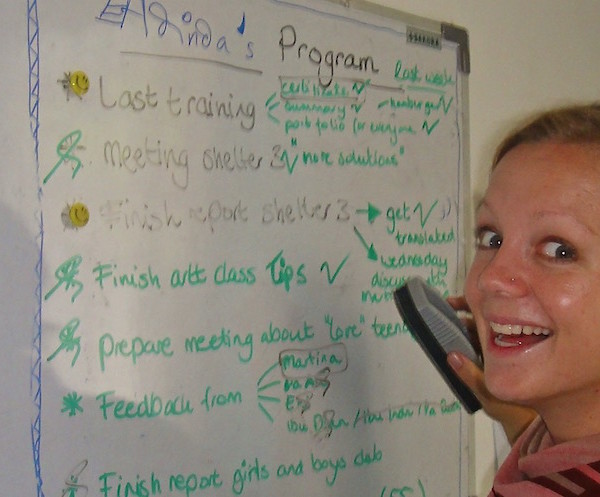 Program
last week
Last training
certificate ✓
summary ✓ hamburger ✓
portfolio for everyone ✓
meeting shelter 3 ✓ "more solutions"
Finish report shelter 3 → get ✓ ;)
translated
wednesday
Finish art class Tips ✓
prepare meeting about "love"
Feedback from
martina
Finish report girls and boys club